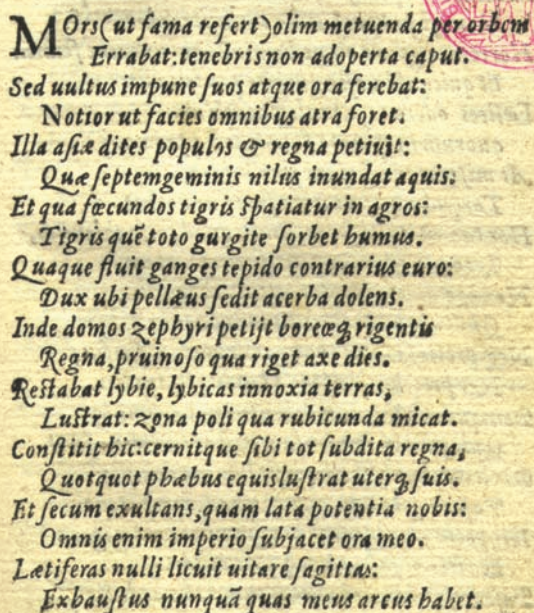 MOrs(ut fama refert)olim metuenda per orbem
Errabat:tenebris non adoperta caput.
Sed uultus impune suos atque ora ferebat:
Notior ut facies omnibus atra foret.
Illa asiæ dites populos & regna petiuit:
Quæ septemgeminis nilus inundat aquis.
Et qua fœcundos tigris spatiatur in agros:
Tigris quē toto gurgite sorbet humus.
Quaque fluit ganges tepido contrarius euro:
Dux ubi pellæus sedit acerba dolens.
Inde domos zephyri petijt boreæq; rigentis
Regna,pruinoso qua riget axe dies.
Restabat lybie, lybicas innoxia terras,
Lustrat: zona poli qua rubicunda micat.
Constitit hic:cernitque sibi tot subdita regna,
Quotquot phæbus equis lustrat uterq; suis.
Et secum exultans,quam lata potentia nobis:
Omnis enim imperio subjacet ora meo.
Lætiferas nulli licuit uitare sagittas:
Exhaustus nunquā quas meus arcus habet.